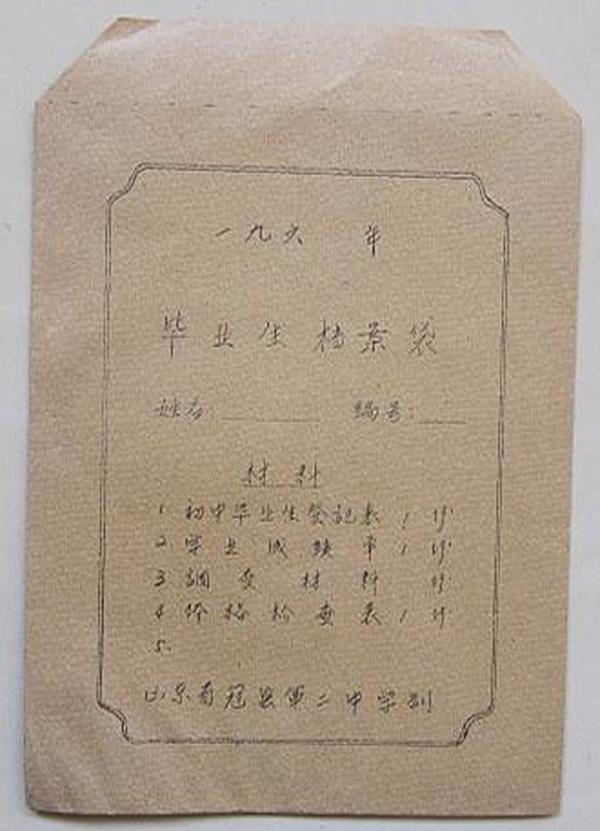 一九六 年
毕业生档案袋
姓名: 编号:
材料
1 初中毕业生登记表 1 份
2 毕业成绩单 1 份
3 調查材料 份
4 体格检查表 1 份
5.
山东省冠县第二中学制